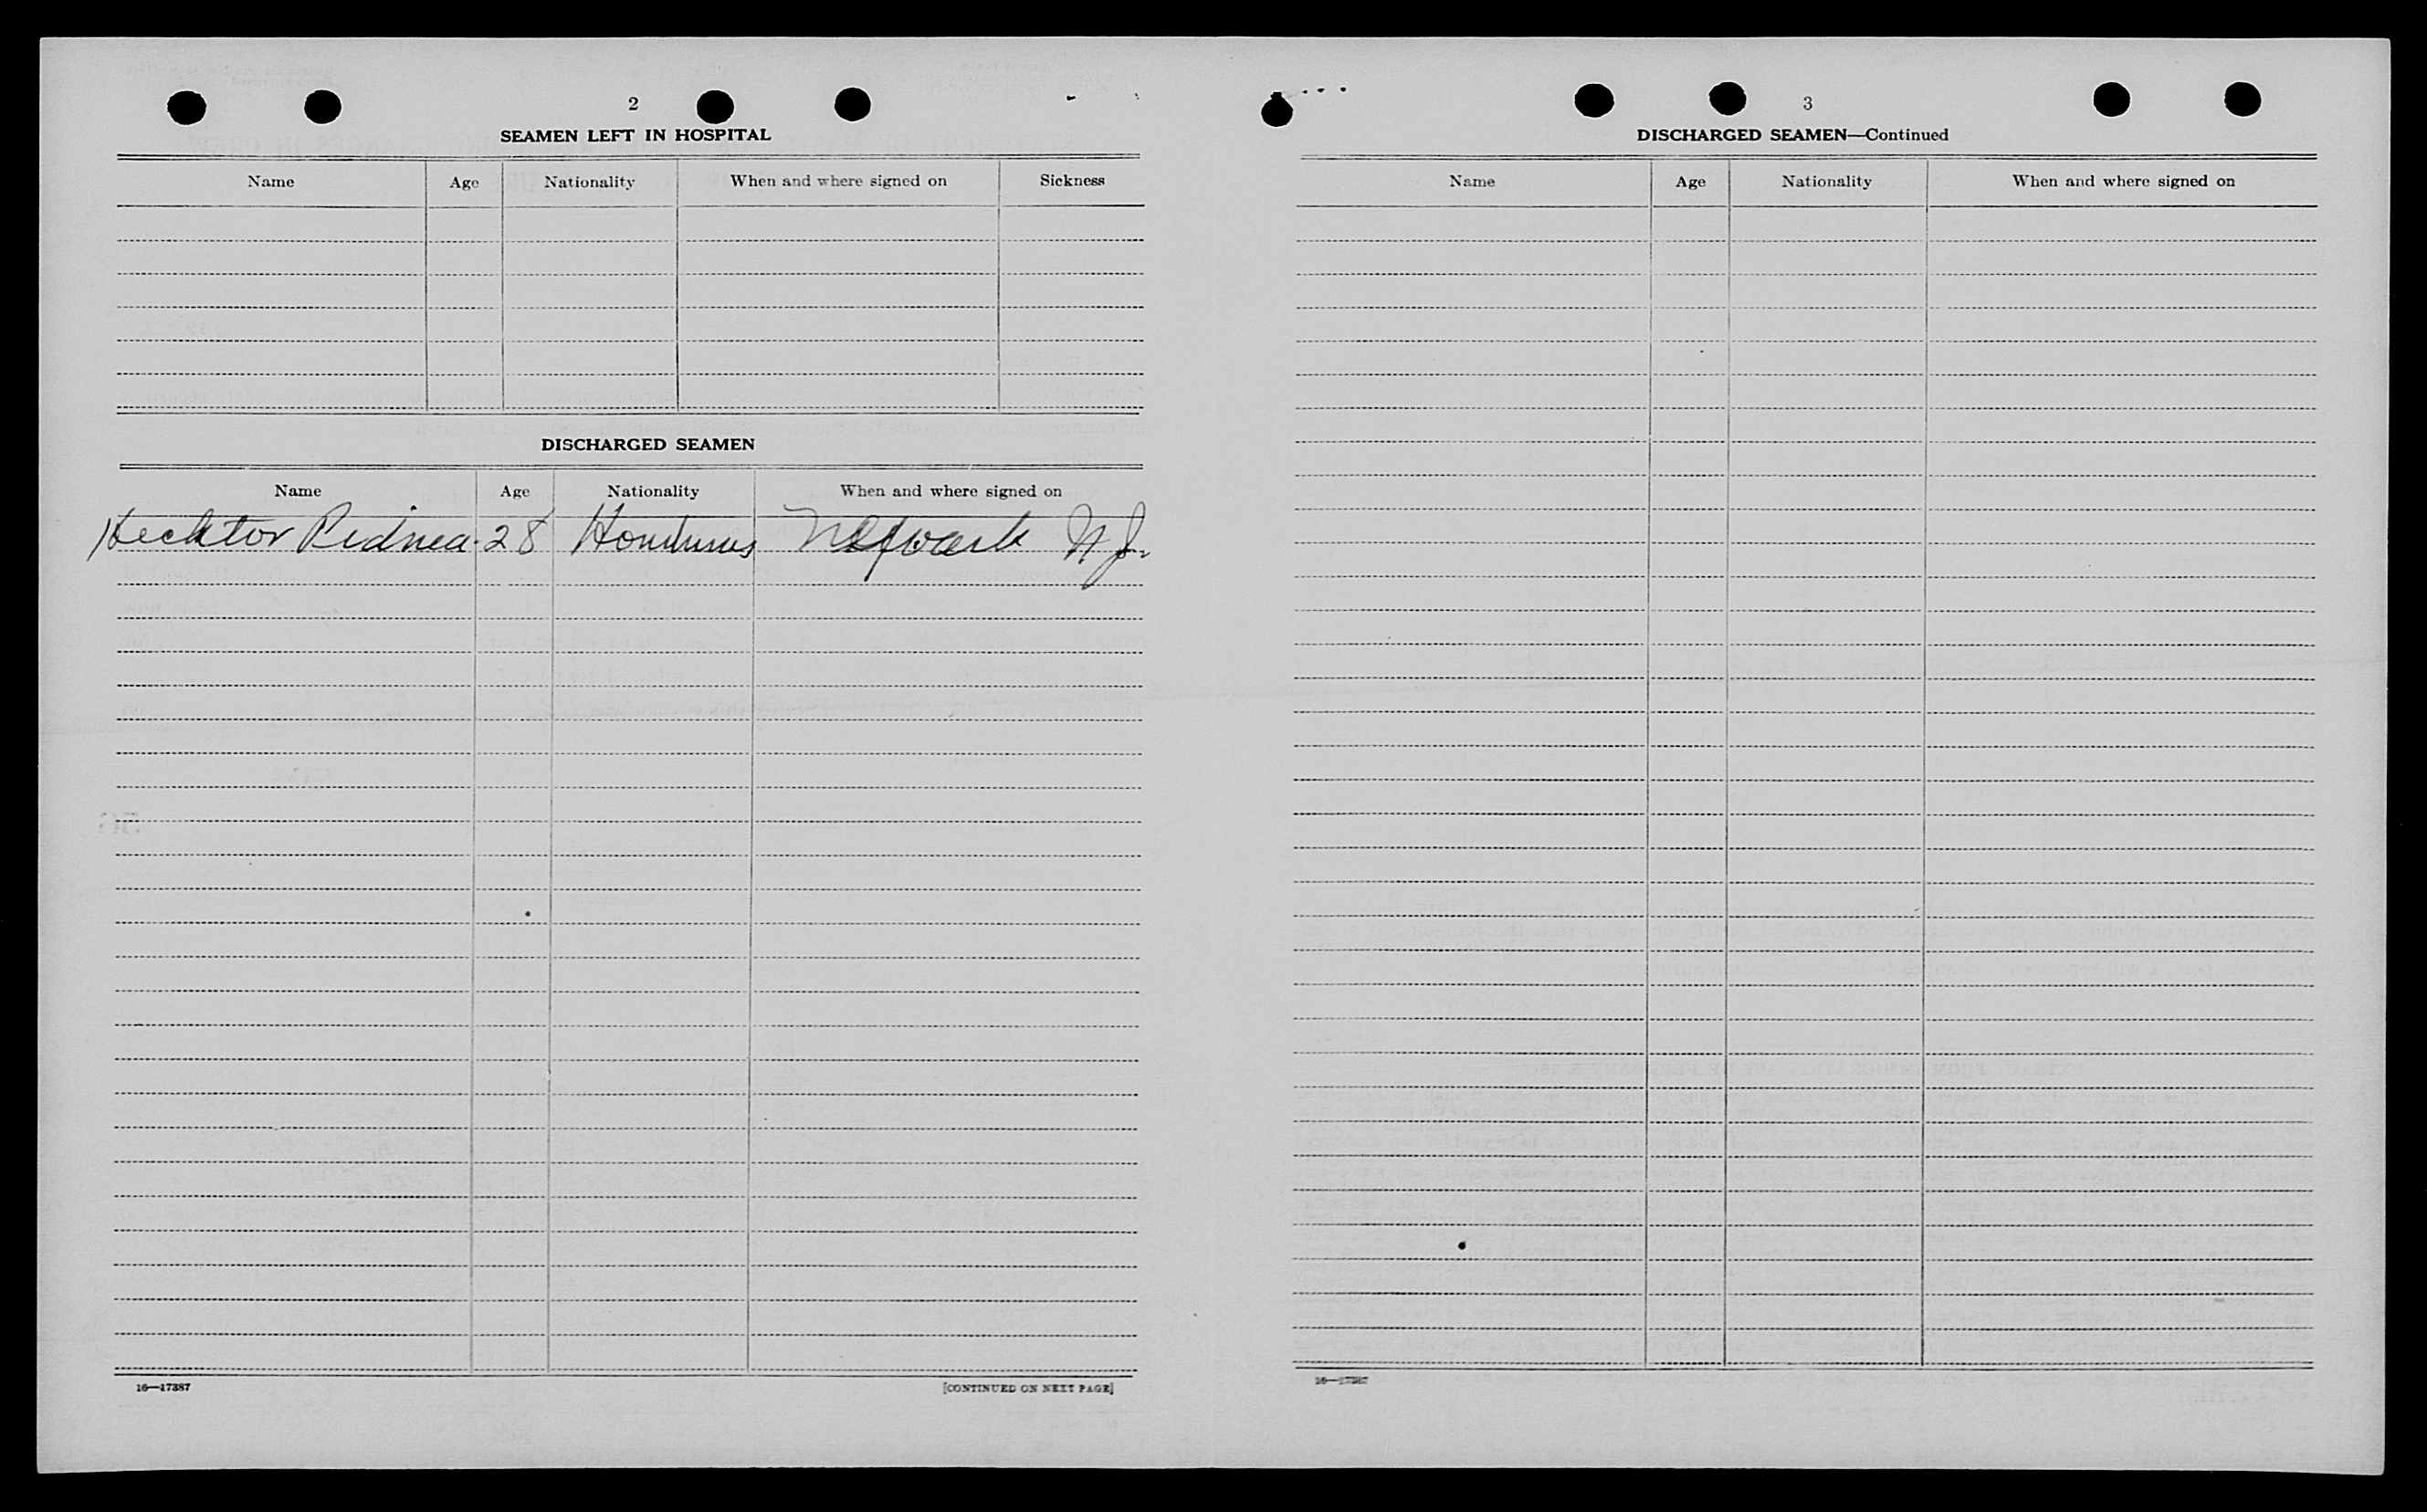 2
SEAMEN LEFT IN HOSPITAL
Name Age Nationality When and where signed on Sickness
DISCHARGED SEAMEN
Name Age Nationality When and where signed on
Hecktor 28 Honduras N.J.
16—17387
[CONTINUED ON NEXT PAGE]
3
DISCHARGED SEAMEN—Continued
Name Age Nationality When and where signed on
16—17387